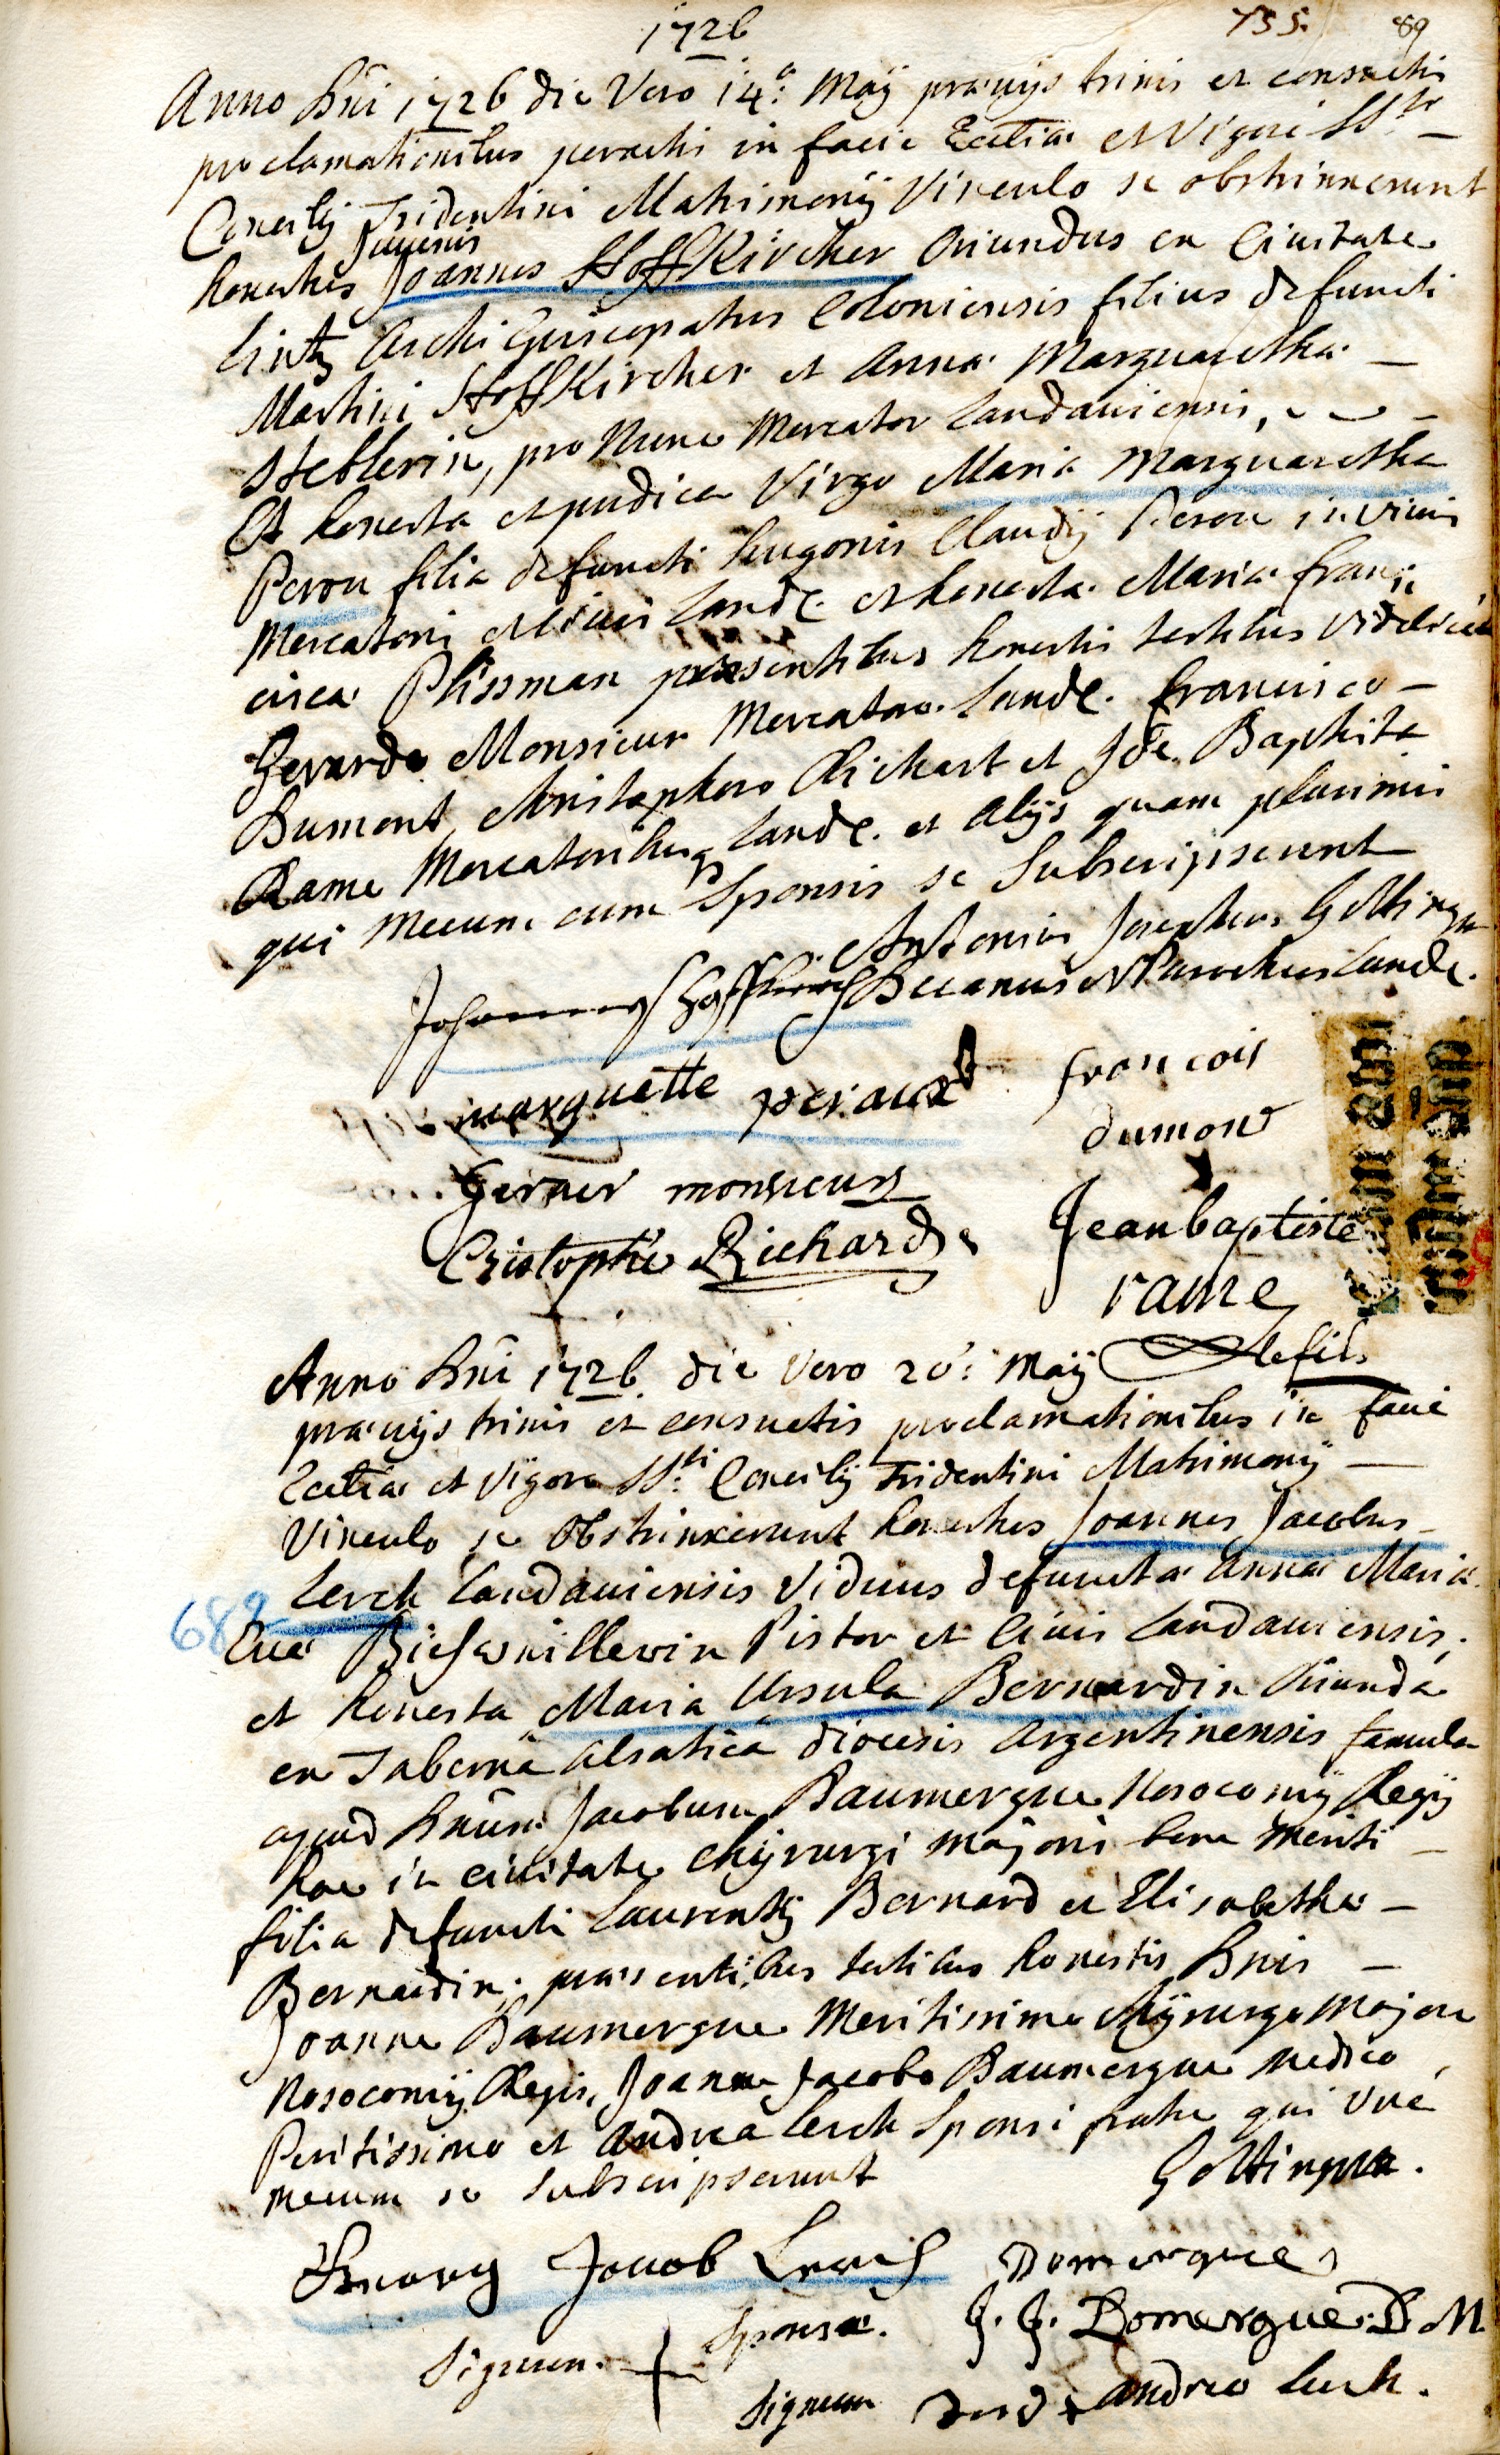 1726
735. 89
Anno Dni 1726 die Vero 14a: Maÿ praevÿs trinis et consuetis
proclamationibus peractis in facie Eccliae et Vigore SSti
Concilÿ Tridentini Matrimonÿ Vinculo se obstrinxerunt
Juvenis
honestus Joannes Hoffkircher Oriundus ex Civitate
Lintz Archi Episcopatus Coloniensis filius defuncti
Martini Hoffkircher et Anna Marguaretha
pro Nunc Mercator Landaviensis,
Et honesta et pudica Virgo Maria Marguaretha
Perou filia defuncti hugonis Claudÿ Perou in vivis
Mercatoris et Civis Land. et honesta Maria Fran=
cisca Plissman praesentibus honestis testibus videlicet
Gerardo Monsieur Mercatore Land. francisco
Dumont, Christophoro Richart et Joe Baptista
Rame Mercatoribus Land. et Alÿs quam plurimis
qui Mecum cum Sponsis se Subscripserunt
Antonius Josephus Gottingne
Decanus et Parochus Land.
Johannes Hoffkirch
marguette peraux
francois
dumont
Gerner monsieur
Cristophe Richard
Jeanbaptiste
rame
lefils
Anno Dni 1726 die Vero 20: Maÿ
praevÿs trinis et consuetis proclamationibus in facie
Eccliae et Vigore SSti Concilÿ Tridentini Matrimonÿ
Vinculo se Obstrinxerunt honestus Joannes Jacobus
689
Lerch Landaviensis Viduus defuncta Anna Maria
Eva Pistor et Civis Landaviensis,
et honesta Maria Ursula Bernardin Oriunda
ex Taberna Alsatica diocesis Argentinensis famula
apud Dnum Jacobum Baumergue Nosocomÿ Regÿ
hac in civitate Chÿrurgi Majoris bene Meriti
filia defuncti Laurentÿ Bernard et Elisabetha
Bernardin; praesentibus testibus honestis Dnis
Joanne Baumergue Meritissimo Chÿrurgo Majore
Nosocomÿ Regis, Joanne Jacobo Baumergue Medico
Peritissimo et Andrea Lerch Sponsi fratre qui Una
Mecum se Subscripserunt
Gottingne.
Jacob Lerch
Domergue
Signum + Sponsae.
J. J. Domergue D M
Signum + andrea Lerch.